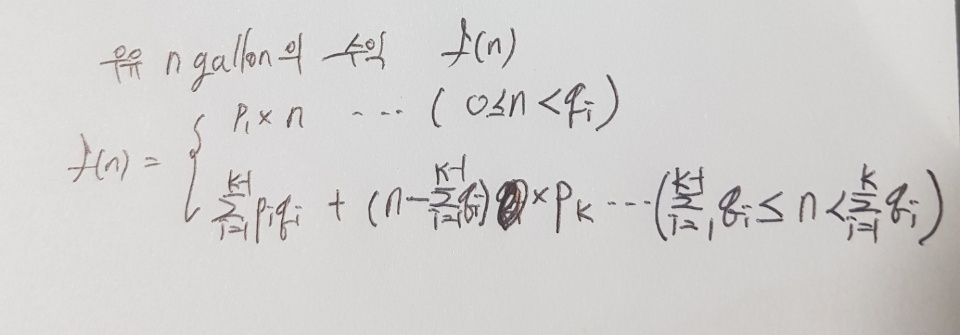 우유 n gallon의 수익 f(n)
f(n) = { P₁ × n ... ( 0≤n <qᵢ)
∑_{i=1}^{k-1} pᵢqᵢ + (n-∑_{i=1}^{k-1} qᵢ) × Pₖ ... (∑_{i=1}^{k-1} qᵢ ≤ n < ∑_{i=1}^{k} qᵢ)